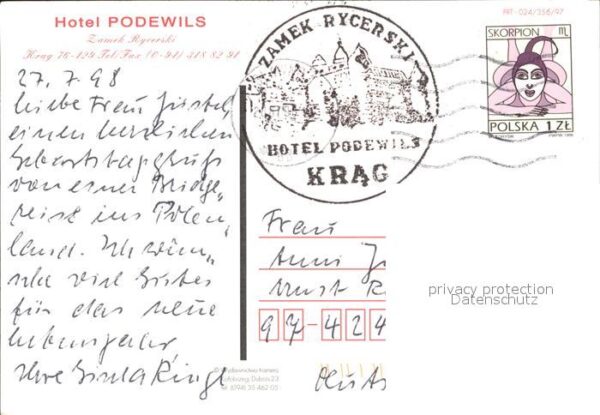 Hotel PODEWILS
Zamek Rycerski
Krąg 76-129 Tel/Fax (0-94) 318 82 91
27.7.98
Liebe Frau
einen herzlichen
Geburtstagsgruß
von einer Bridge„
reise ins Polen„
land. Ich wün„
sche viel Gutes
für das neue
Lebensjahr
Ihre Gisela Ringl
ZAMEK RYCERSKI
HOTEL PODEWILS
KRĄG
PRT-024/356/97
SKORPION ♏
POLSKA 1 ZŁ
Frau
Anni
Ernst
97-424
privacy protection
Datenschutz